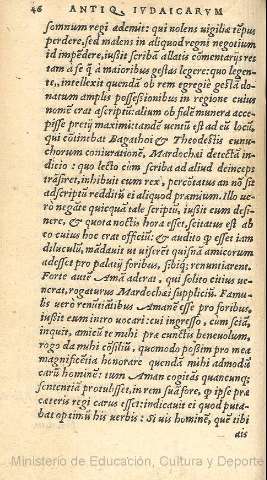 46 ANTIQ. IVDAICARVM
somnum regi ademit: qui nolens uigilia tẽpus
perdere, sed malens in aliquod regni negotium
id impẽdere, iussit scribã allatis cõmentarijs res
tam à se q̃ à maioribus gestas legere: quo legen-
te, intellexit quendã ob rem egregiè gestã do-
natum amplis possessionibus in regione cuius
nomẽ erat ascriptũ: alium ob fidẽ munera acce-
pisse pretij maximi: tandẽ uentũ est ad eũ locũ,
qui cõtinebat Bagathoi & Theodestis eunu-
chorum coniurationẽ, Mardochæi detectã in-
dicio: quo lecto cùm scriba ad aliud deinceps
trãsiret, inhibuit eum rex, percõtatus an nõ sit
adscriptũ redditũ ei aliquod præmium. Illo ue-
rò negãte quicquã tale scriptũ, iussit eum desi-
nere, & quota noctis hora esset, sciscitatus est ab
eo cuius hoc erat officiũ: & audito q̃ esset iam
diluculũ, mãdauit ut uiseret quisnã amicorum
adesset pro palatij foribus, sibiq; renuntiarent.
Fortè autẽ Amã aderat, qui solito citius ue-
nerat, rogaturus Mardochæi supplicium. Famu-
lis uerò renũtiãtibus Amanẽ esse pro foribus,
iussit eum intro uocari: cui ingresso, cum sciã,
inquit, amicũ te mihi præ cunctis beneuolum,
rogo da mihi cõsiliũ, quomodo possim pro mea
magnificẽtia honorare quendã mihi admodũ
carũ hominẽ: tum Aman cogitãs quancunq;
sententiã protulisset, in rem suã fore, q̃ ipse præ
cæteris regi carus esset: indicauit ei quod puta-
bat optimũ his uerbis: Si uis hominẽ, quẽ tibi
ais
Ministerio de Educación, Cultura y Deporte